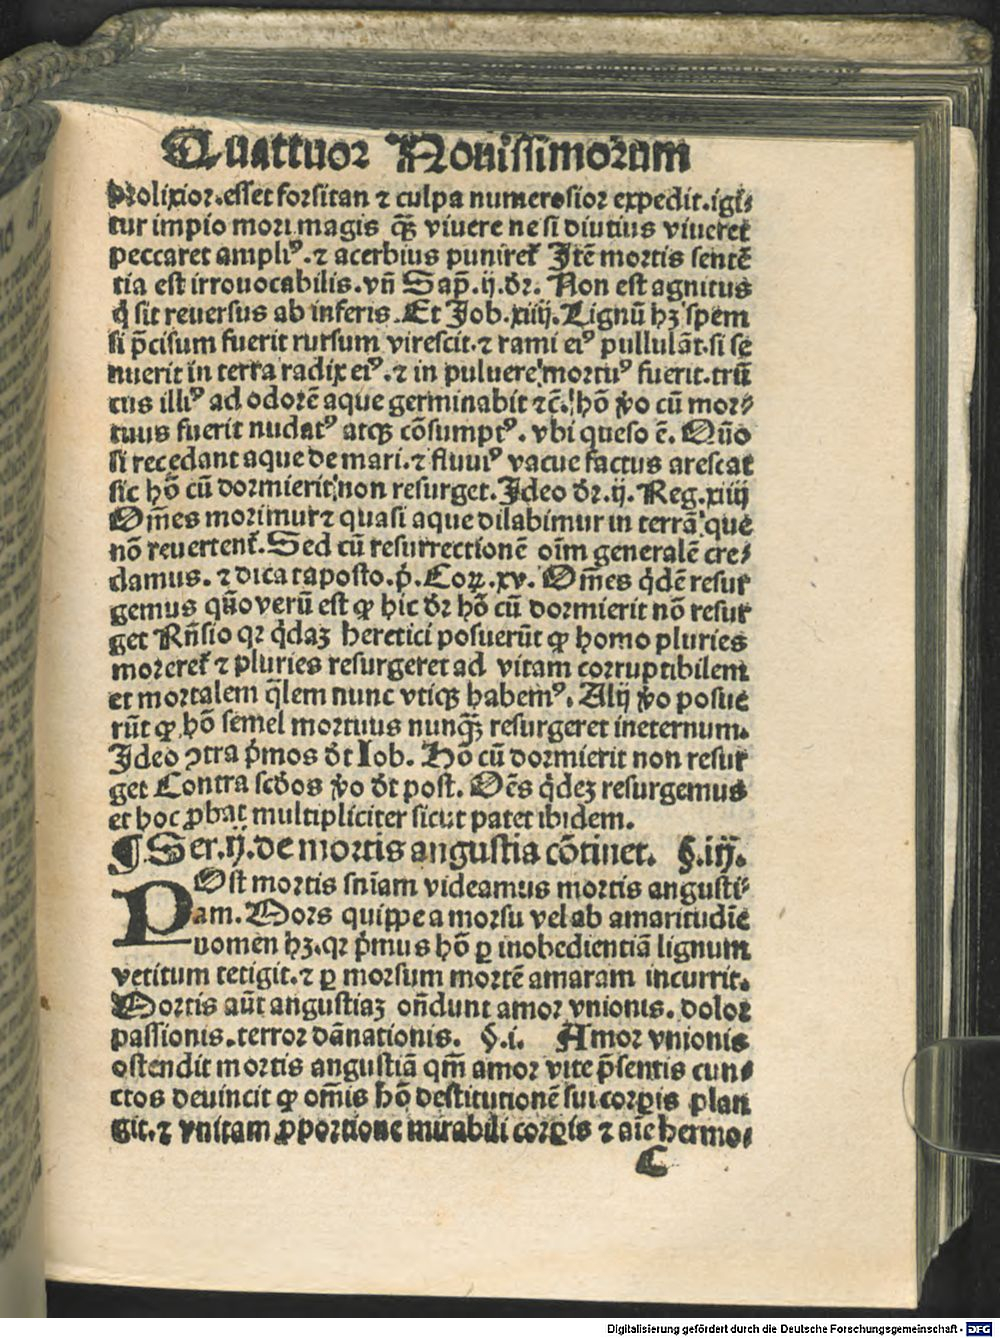 Quattuor Nouissimorum
Prolixior.esset forsitan ⁊ culpa numerosior expedit.igi⸗
tur impio mori magis qꝫ̃ viuere ne si diutius viueret᷑
peccaret ampliꝰ.⁊ acerbius puniret᷑ Itẽ mortis sentẽ
tia est irrouocabilis.vñ Sap̃.ij.dr̃. Non est agnitus
q̇ sit reuersus ab inferis.Et Job.xiiij.Lignũ hꝫ spem
si p̃cisum fuerit rursum virescit.⁊ rami eiꝰ pullulãt.si se
nuerit in terra radix eiꝰ.⁊ in puluere mortuꝰ fuerit.trũ
cus illiꝰ ad odorẽ aque germinabit ⁊c̃.hõ ꝟo cũ mor⸗
tuus fuerit nudatꝰ atqꝫ cõsumptꝰ.vbi queso ẽ. Quõ
si recedant aque de mari.⁊ fluuiꝰ vacue factus arescat
sic hõ cũ dormierit non resurget.Ideo dr̃.ij.Reg.xiiij
Om̃es morimur⁊ quasi aque dilabimur in terrã que
nõ reuertent᷑.Sed cũ resurrectionẽ oĩm generalẽ cre⸗
damus.⁊ dicat aposto.p̃.Coꝝ.xv. Om̃es q̇dẽ resur
gemus quõ verũ est ꝙ hic dr̃ hõ cũ dormierit nõ resur
get Rñsio qꝛ q̇daꝫ heretici posuerũt ꝙ homo pluries
moreret᷑ ⁊ pluries resurgeret ad vitam corruptibilem
et mortalem q̃lem nunc vtiqꝫ habemꝰ. Alij ꝟo posue
rũt ꝙ hõ semel mortuus nunqꝫ̃ resurgeret ineternum.
Ideo ꝯtra p̃mos dt̃ Iob. Hõ cũ dormierit non resur
get Contra scd̃os ꝟo dt̃ post. Oẽs q̇deꝫ resurgemus
et hoc ꝓbat multipliciter sicut patet ibidem.
¶ Ser.ij.de mortis angustia cõtinet. §.iij.
POst mortis sñiam videamus mortis angusti⸗
am.Mors quippe a morsu vel ab amaritudĩe
nomen hꝫ.qꝛ p̃mus hõ ꝑ inobedientiã lignum
vetitum tetigit.⁊ ꝑ morsum mortẽ amaram incurrit.
Mortis aũt angustiaꝫ oñdunt amor vnionis.dolor
passionis.terror dãnationis. §.i. Amor vnionis
ostendit mortis angustiã qm̃ amor vite p̃sentis cun⸗
ctos deuincit ꝙ om̃is hõ destitutionẽ sui corꝑis plan
git.⁊ vnitam ꝓportione mirabili corꝑis ⁊ aĩe hermo⸗
C
Digitalisierung gefördert durch die Deutsche Forschungsgemeinschaft - DFG